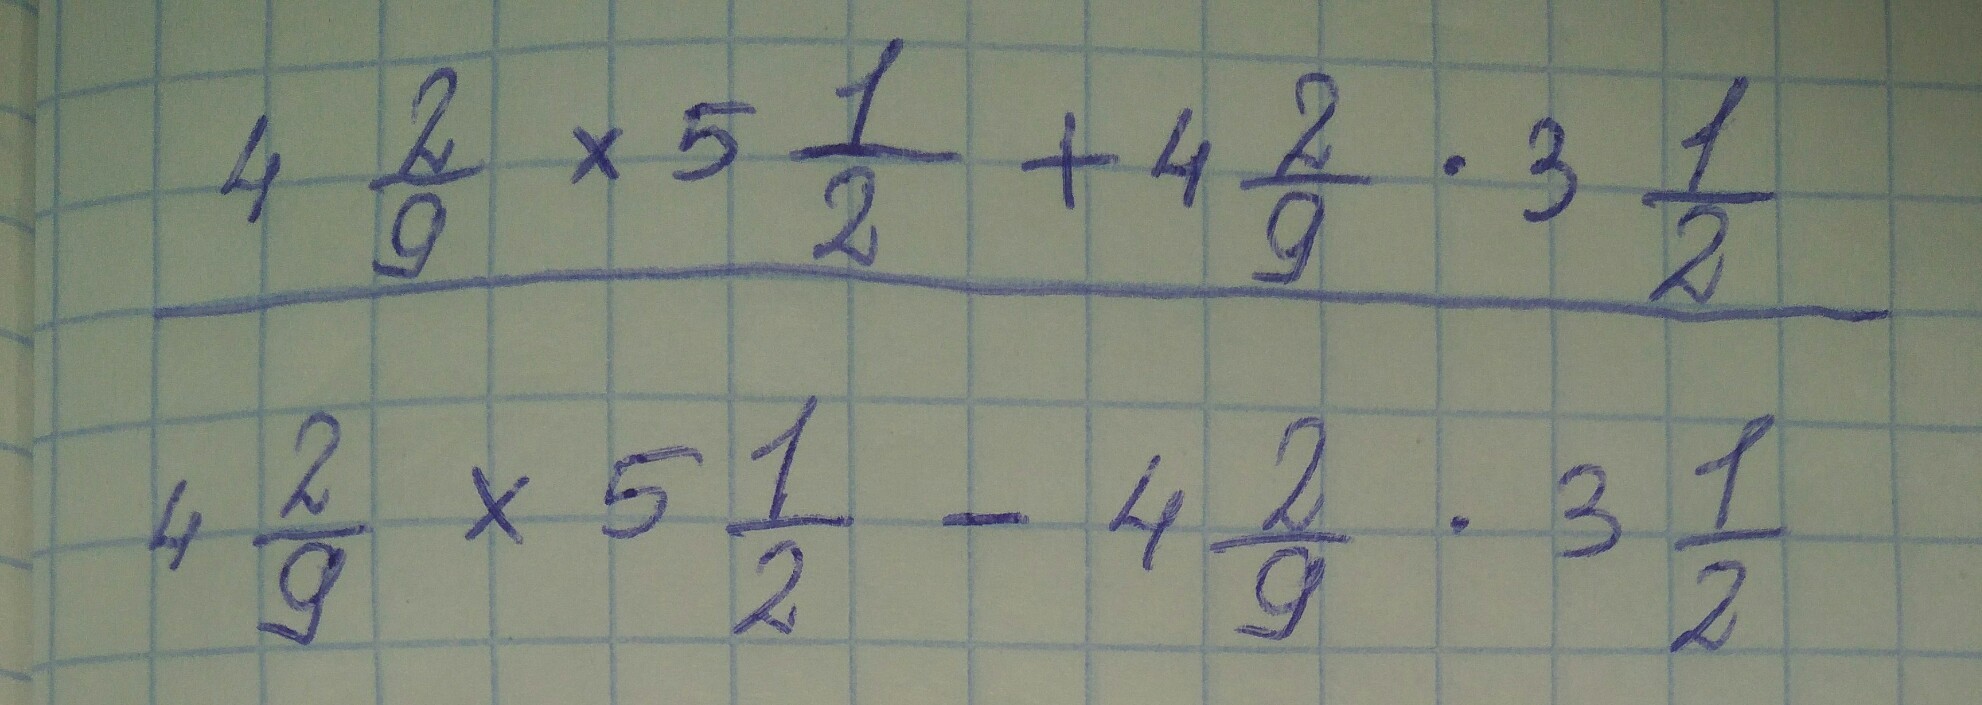 4 2/9 × 5 1/2 + 4 2/9 · 3 1/2
4 2/9 × 5 1/2 − 4 2/9 · 3 1/2